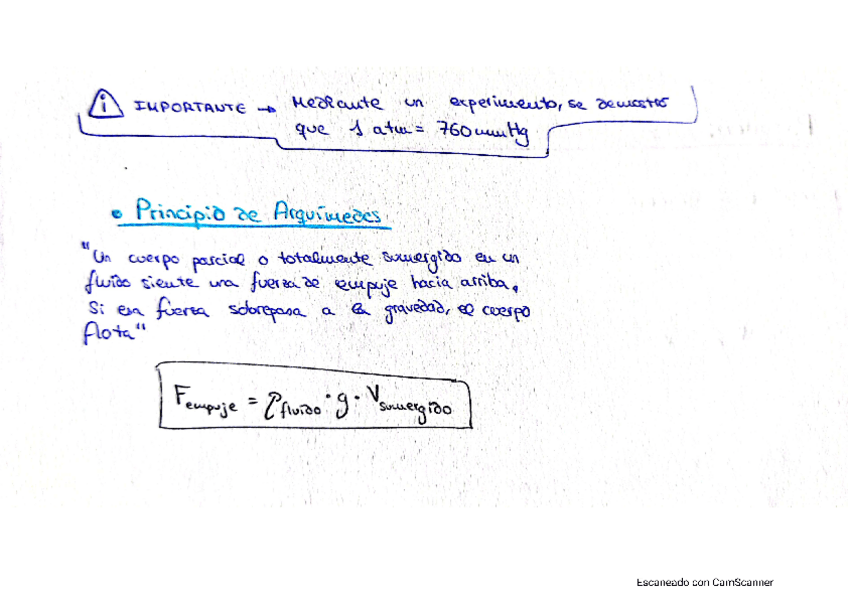 i IMPORTANTE → Mediante un experimento, se demostró
que 1 atm = 760 mmHg
• Principio de Arquímedes
"Un cuerpo parcial o totalmente sumergido en un
fluido siente una fuerza de empuje hacia arriba.
Si esa fuerza sobrepasa a la gravedad, el cuerpo
flota"
F empuje = ρ fluido · g · V sumergido
Escaneado con CamScanner